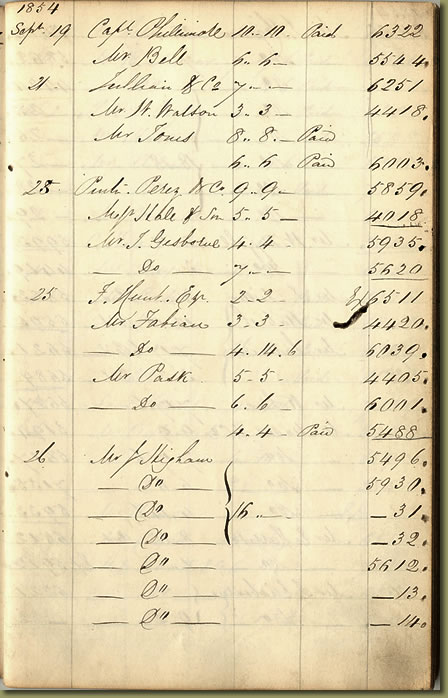 1854
Sept. 19 Capt. Phillimore 10 - 10 - Paid 6322
Mr Bell 6 - 6 - 5544.
21 & Co 7 - - 6251
Mr W. Watson 3 - 3 - 4418.
Mr Jones 8 - 8 - Paid
6 - 6 Paid 6003.
23 Perez & Co 9 - 9 - 5859.
& Son 5 - 5 - 4018.
Mr. J. Gisborne 4 - 4 - 5935.
— Do — 7 - - 5620
25 F. Hunt. Esq. 2 - 2 - 6511
Mr Fabian 3 - 3 - 4420.
— Do — 4. 14. 6 6039.
Mr Pask 5 - 5 - 4405.
— Do — 6. 6 - 6001.
4. 4 - Paid 5488
26 Mr J Higham 5496.
— Do — 5930.
— Do — 16 " — 31.
— Do — — 32.
— Do — 5612.
— Do — — 13.
— Do — — 14.